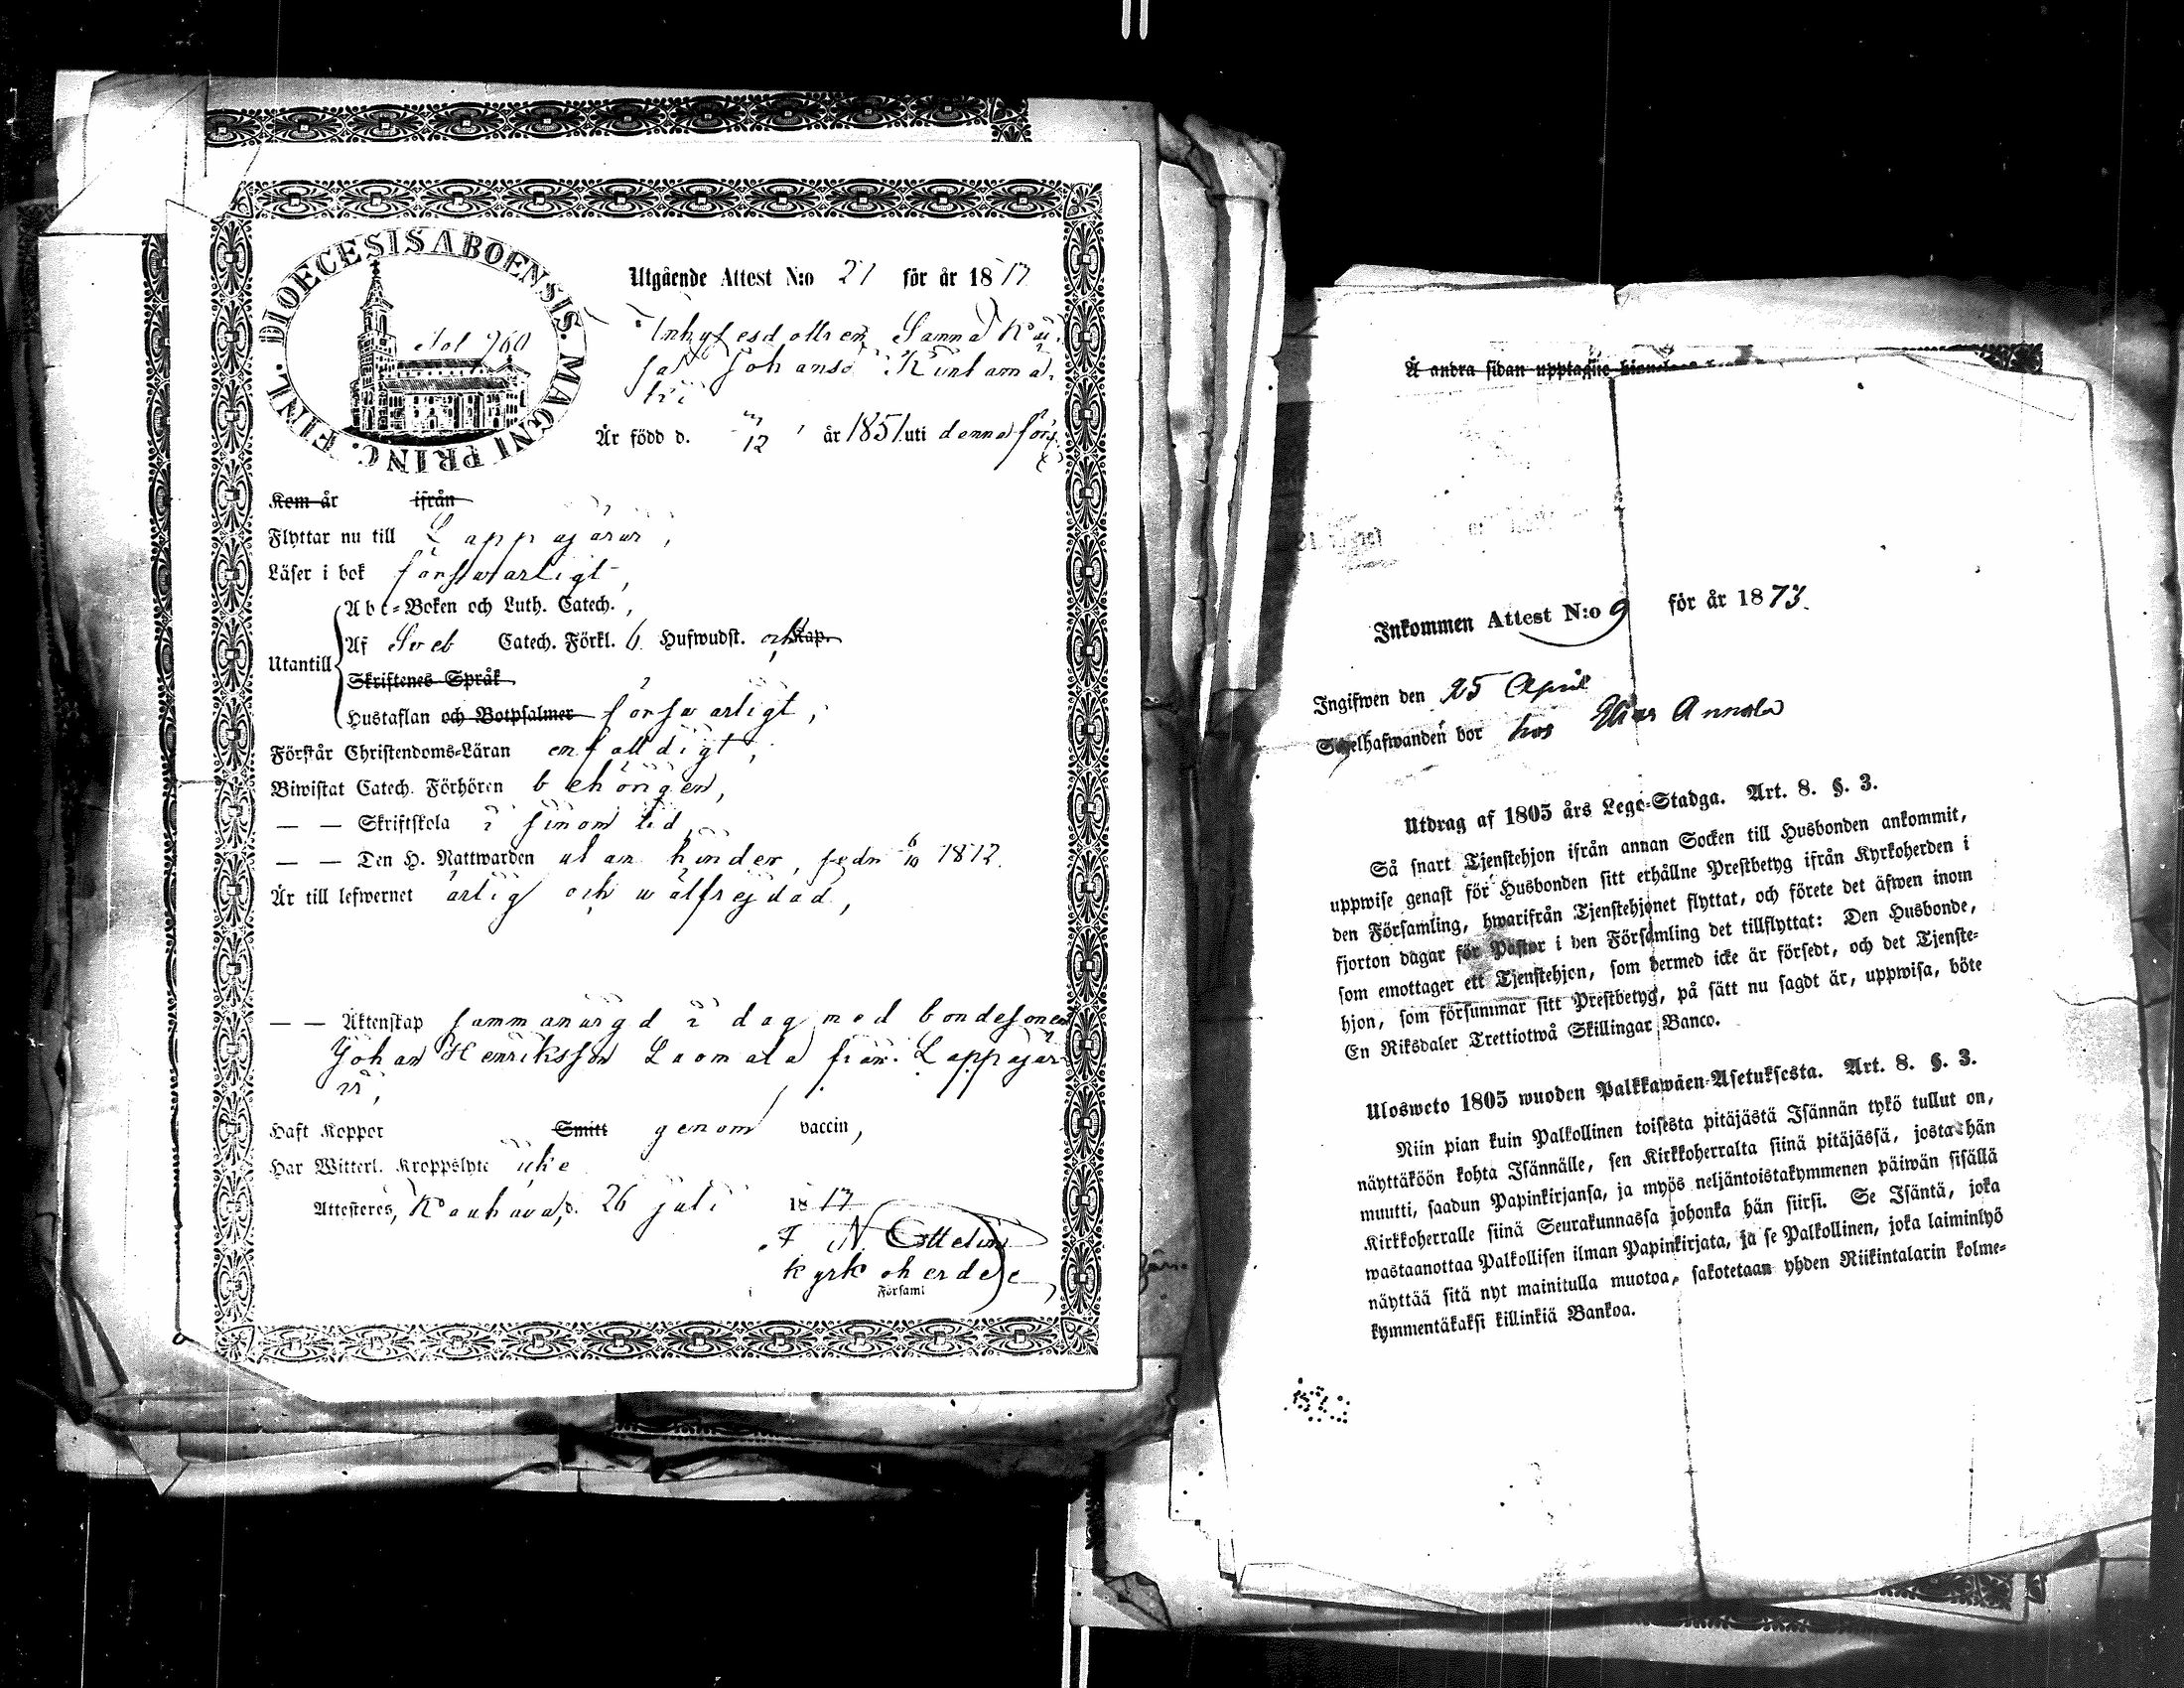 DIOECESIS ABOENSIS. MAGNI PRINC. FINL.
Fol 960
Utgående Attest N:o 21 för år 18
Sanna
Johansd
Är född d. 12 år 1851 uti denna förs.
Kom år ifrån
Flyttar nu till Lappajärvi,
Läser i bok förswarligt,
Abc-Boken och Luth. Catech.,
Af Sveb Catech. Förkl. 6 Hufwudst. och Kap.
Utantill
Skriftenes Språk
Hustaflan och Botpsalmer förswarligt,
Förstår Christendoms-Läran enfalldigt,
Biwistat Catech. Förhören behörigen,
— — Skriftskola i sinom tid,
— — Den H. Nattwarden utan hinder, sedn 6/10
Är till lefwernet ärlig och wälfrejdad,
— — Äktenskap sammanwigd i dag med bondesonen
Johan Henriksson Laomala från Lappajär-
vi,
Haft Koppor Smitt genom vaccin,
Har Witterl. Kroppslyte icke
Attesteres, Kauhava, d. 26 juli 18
F N Ottelin
kyrkoherde
Församl
Å andra sidan upptagne
Inkommen Attest N:o 9 för år 1873.
Ingifwen den 25 April
Sedelhafwanden bor hos Elias Annala
Utdrag af 1805 års Lego-Stadga. Art. 8. §. 3.
Så snart Tjenstehjon ifrån annan Socken till Husbonden ankommit,
uppwise genast för Husbonden sitt erhållne Prestbetyg ifrån Kyrkoherden i
den Församling, hwarifrån Tjenstehjonet flyttat, och förete det äfwen inom
fjorton dagar för Pastor i den Församling det tillflyttat: Den Husbonde,
som emottager ett Tjenstehjon, som dermed icke är försedt, och det Tjenste-
hjon, som försummar sitt Prestbetyg, på sätt nu sagdt är, uppwisa, böte
En Riksdaler Trettiotwå Skillingar Banco.
Ulosweto 1805 wuoden Palkkawäen-Asetuksesta. Art. 8. §. 3.
Niin pian kuin Palkollinen toisesta pitäjästä Isännän tykö tullut on,
näyttäköön kohta Isännälle, sen Kirkkoherralta siinä pitäjässä, josta hän
muutti, saadun Papinkirjansa, ja myös neljäntoistakymmenen päiwän sisällä
Kirkkoherralle siinä Seurakunnassa johonka hän siirsi. Se Isäntä, joka
wastaanottaa Palkollisen ilman Papinkirjata, ja se Palkollinen, joka laiminlyö
näyttää sitä nyt mainitulla muotoa, sakotetaan yhden Riikintalarin kolme-
kymmentäkaksi killinkiä Bankoa.